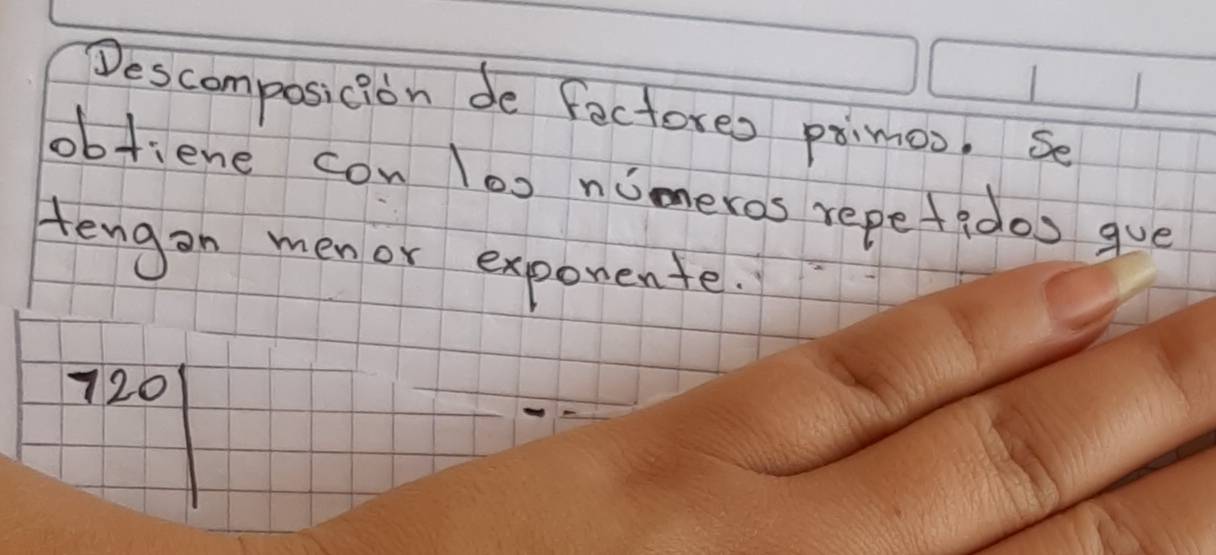 Descomposición de factores primos. Se
obtiene con los números repetidos que
tengan menor exponente.
720